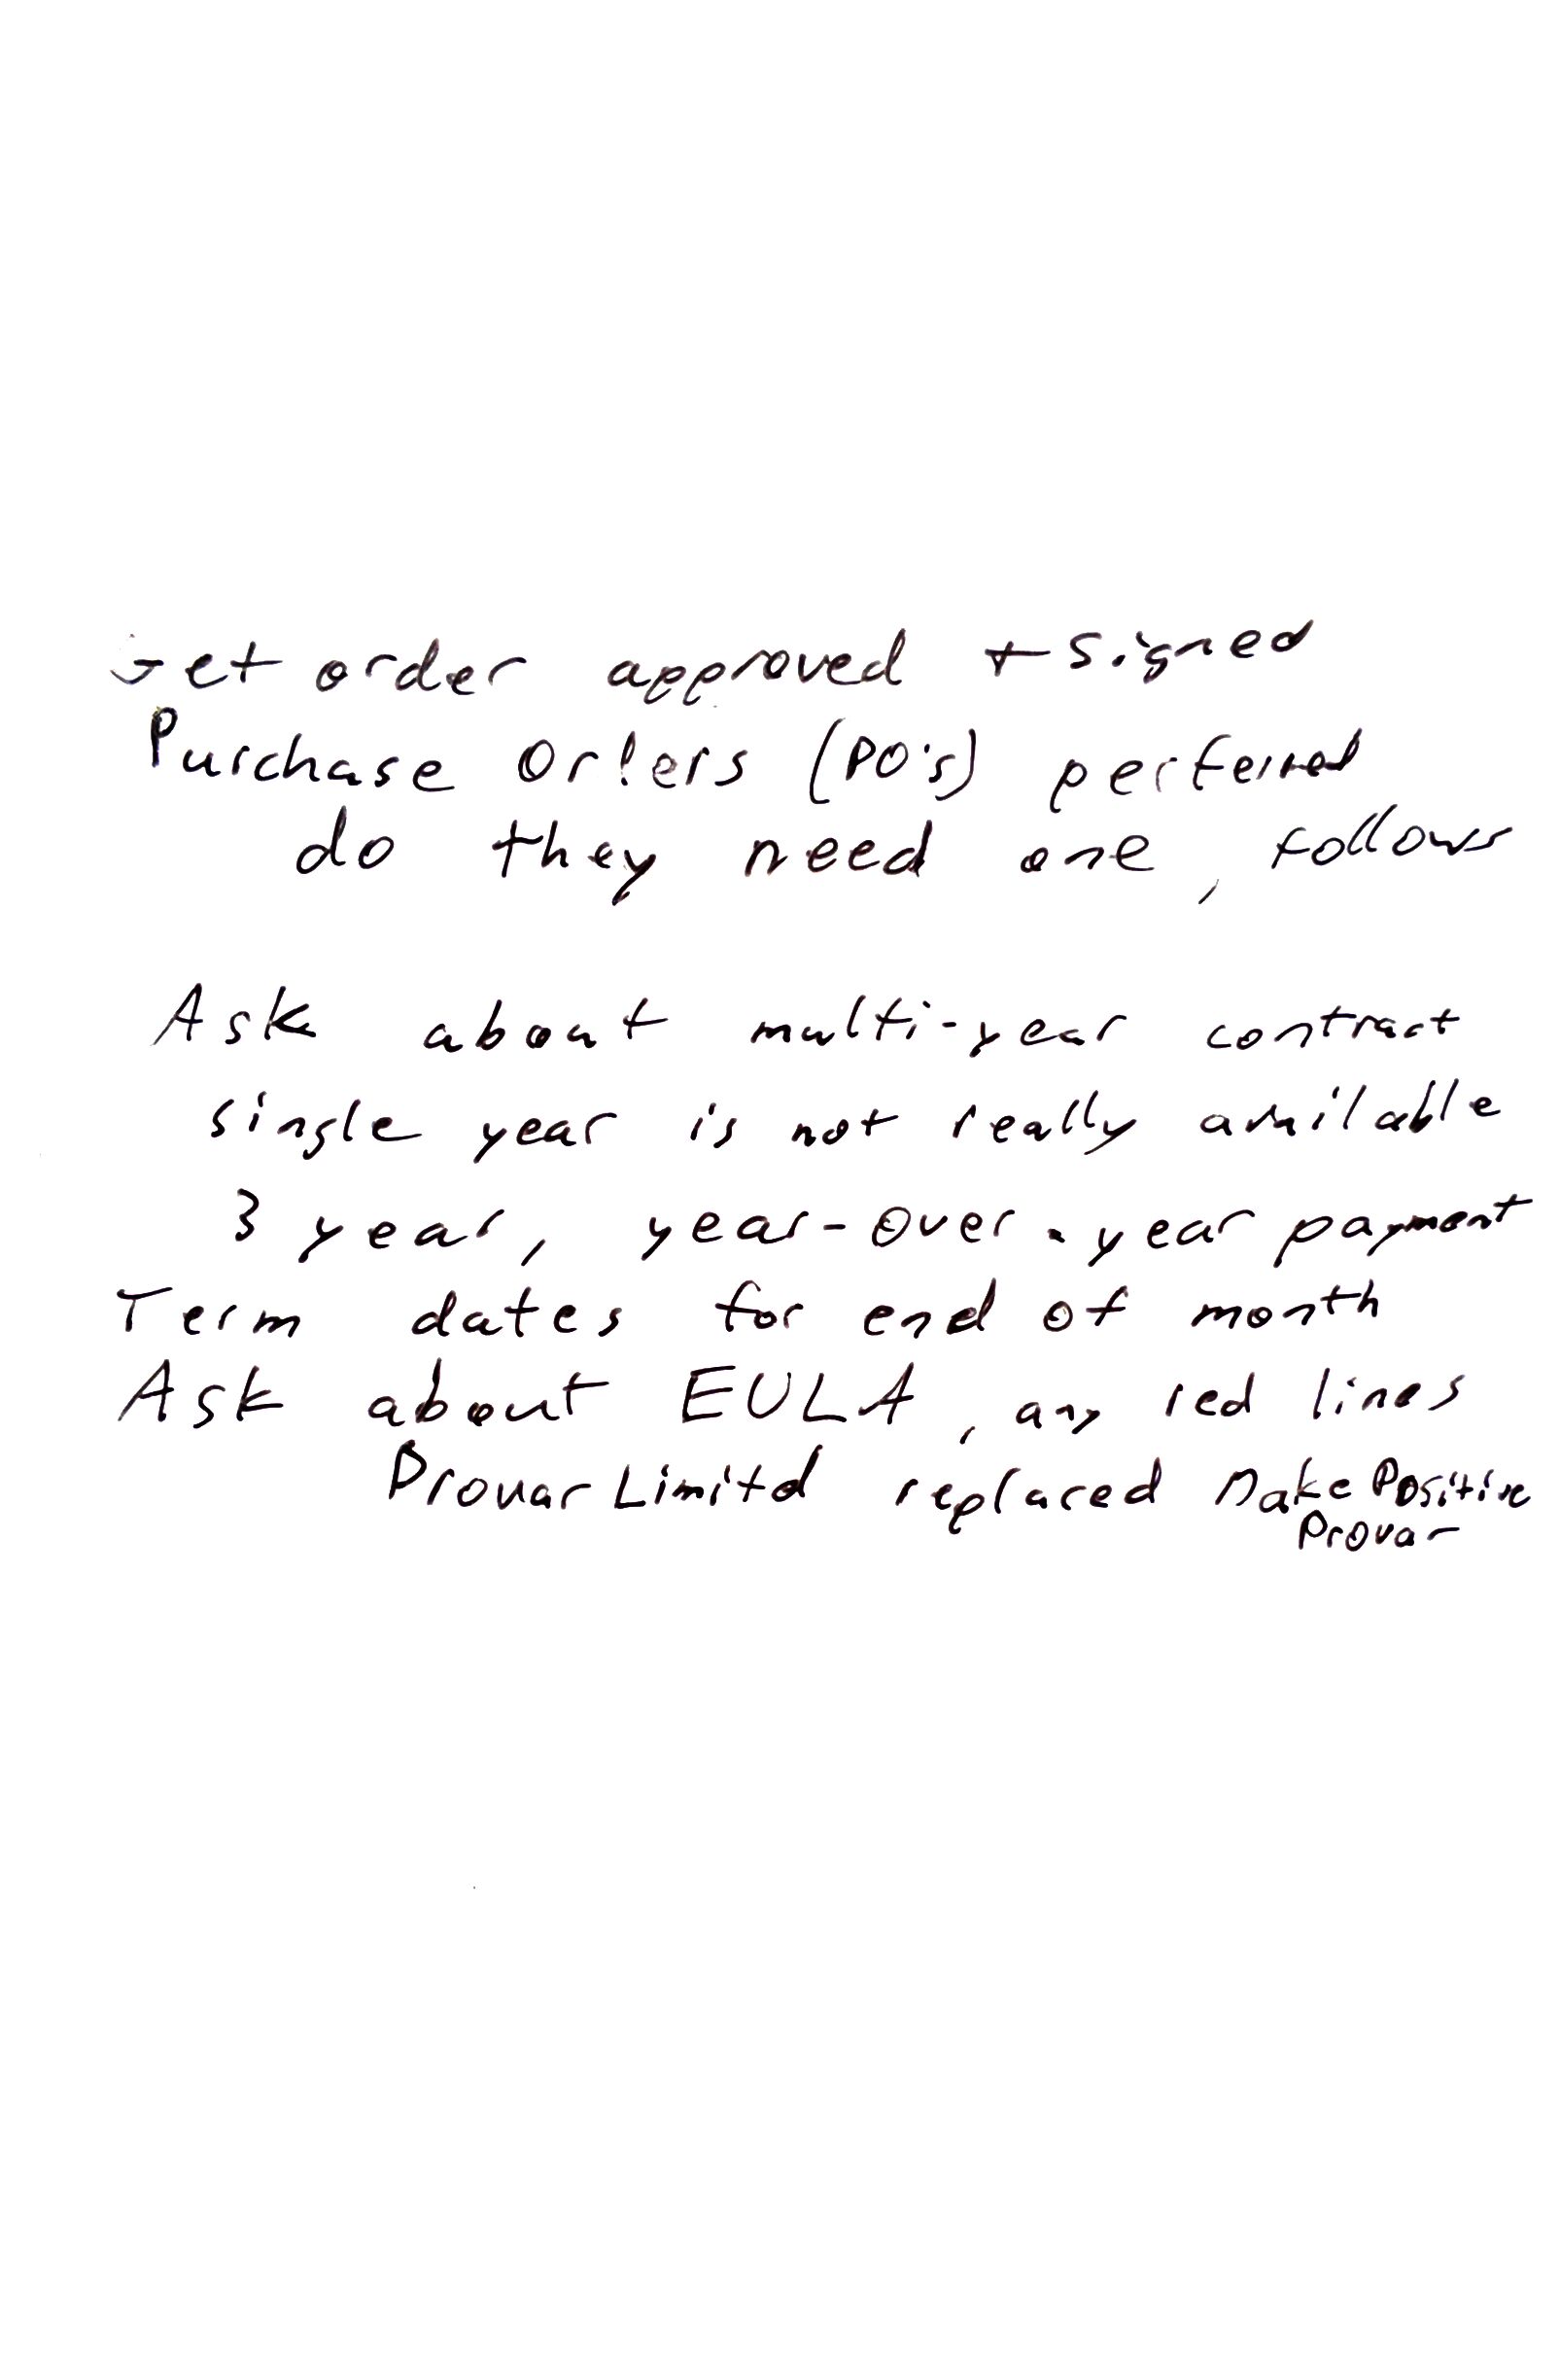 Get order approved + signed
Purchase Orders (PO's) perferred
do they need one, follows
Ask about multi-year contract
single year is not really available
3 year, year-over-year payment
Term dates for end of month
Ask about EULA, any red lines
Provar Limitd replaced Make Positive
Provar